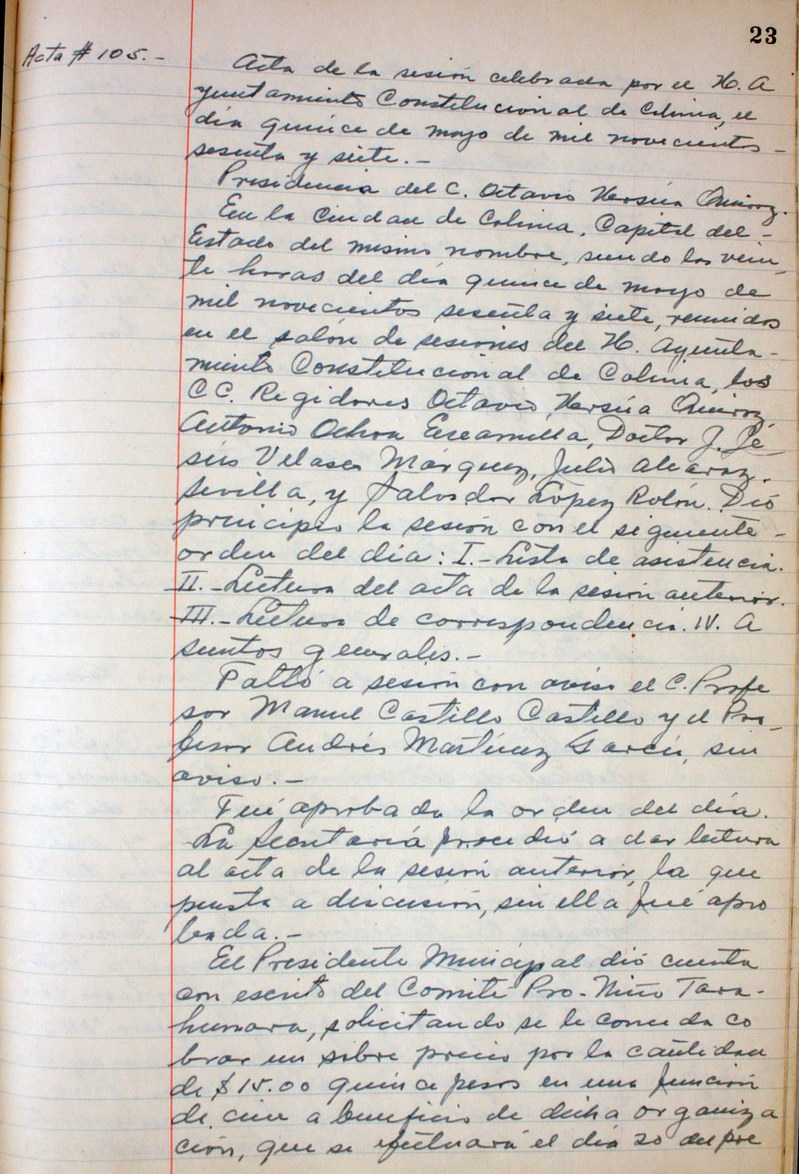 23
Acta # 105.-
Acta de la sesión celebrada por el H. A
yuntamiento Constitucional de Colima, el
día quince de mayo de mil novecientos-
sesenta y siete.-
Presidencia del C. Octavio Ursúa Quiroz.
En la Ciudad de Colima, Capital del-
Estado del mismo nombre, siendo las vein-
te horas del día quince de mayo de
mil novecientos sesenta y siete, reunidos
en el salón de sesiones del H. Ayunta-
miento Constitucional de Colima, los
CC. Regidores Octavio Ursúa Quiroz,
Antonio Ochoa Escamilla, Doctor J. Je
sús Velasco Márquez, Julio Alcaraz
Sevilla, y Salvador López Rolón. Dió
principio la sesión con el siguiente-
orden del día: I.- Lista de asistencia.
II.- Lectura del acta de la sesión anterior.
III.- Lectura de correspondencia. IV. A
suntos generales.-
Faltó a sesión con aviso el C. Profe
sor Manuel Castillo Castillo y el Pro-
fesor Andrés Martínez García, sin
aviso.-
Fué aprobada la orden del día.
La Secretaría procedió a dar lectura
al acta de la sesión anterior, la que
puesta a discusión, sin ella fué apro
bada.-
El Presidente Municipal dió cuenta
con escrito del Comité Pro-Niño Tara-
humara, solicitando se le conceda co
brar un sobre precio por la cantidad
de $15.00 quince pesos en una función
de cine a beneficio de dicha organiza
ción, que se efectuará el día 20 del pre